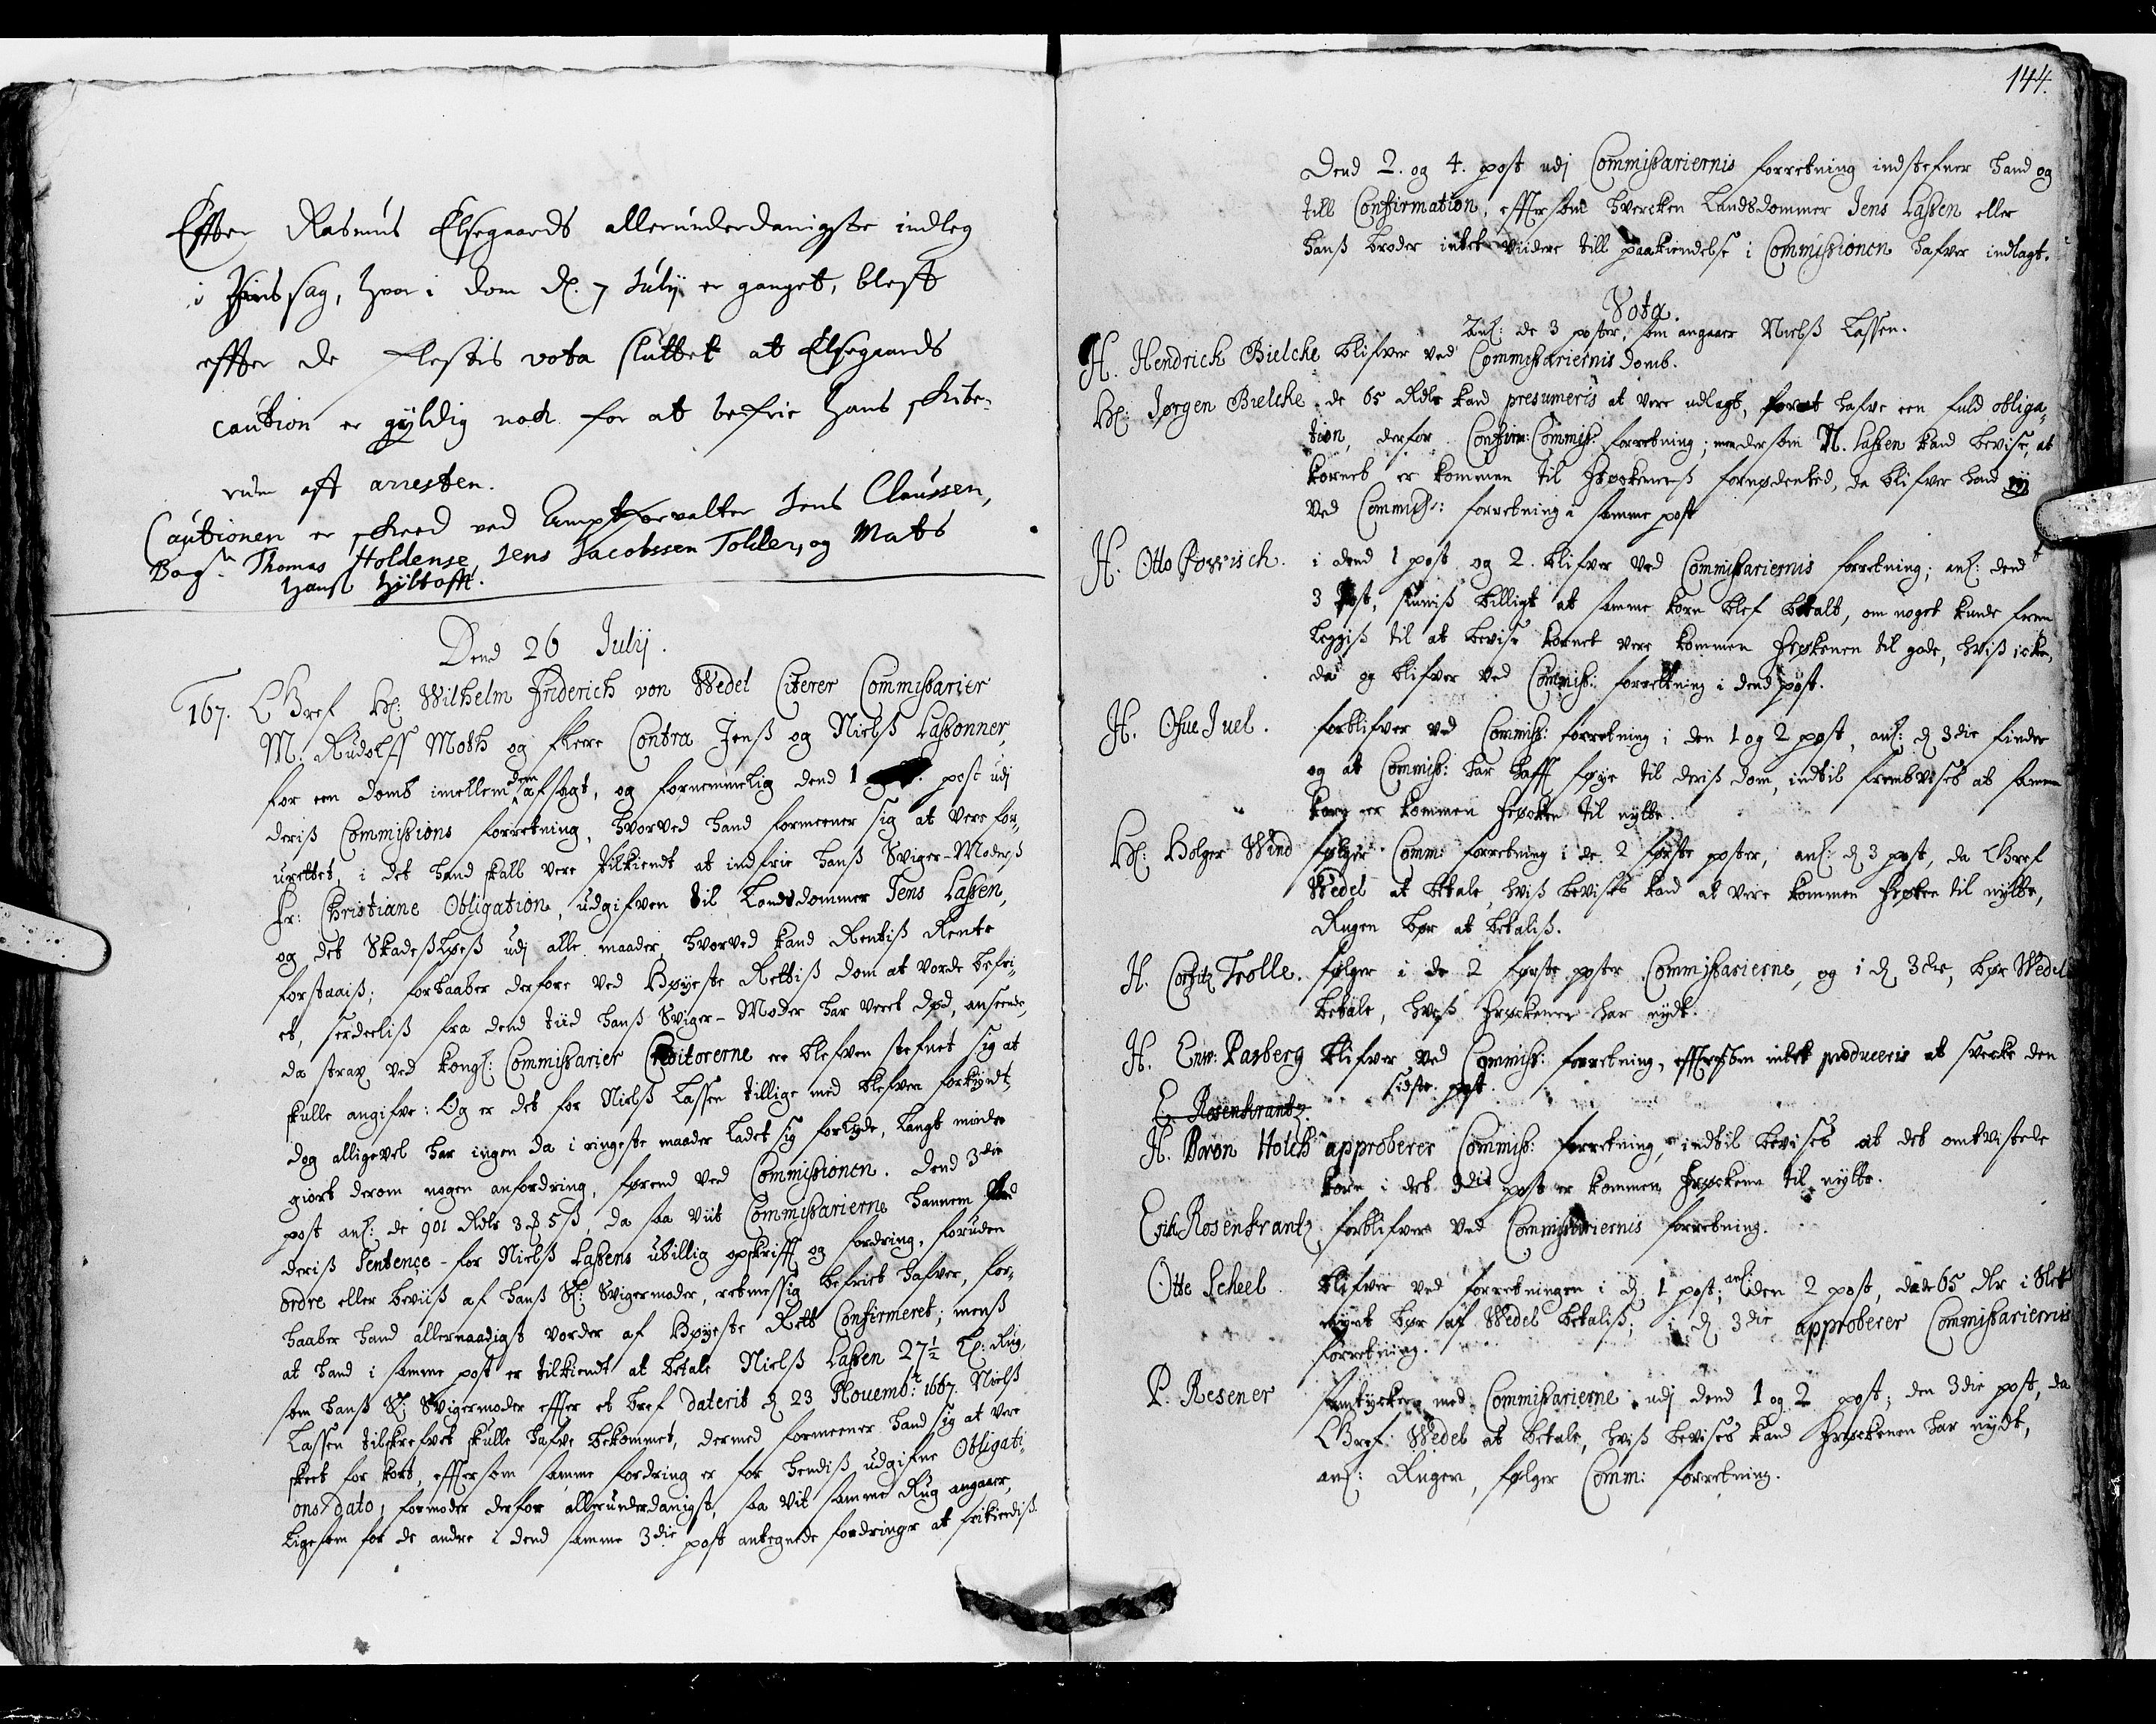 Effter Rasmus Elsegaards allerunderdanigste indleg
i sag, hvor i dom d. 7 Julij er ganget, bleff
effter de flestis vota sluttet at Elsegaards
caution er gyldig nock for at befrie hans skibe
rum aff arresten.
Cautionen er skeed ved Amptforvalter Jens Claussen,
Thomas Holdense, Jens Jacobssen Tolder, og Mats
Hanß Hyltofft.
Dend 26 Julij.
167. LGref H: Wilhelm Friderich von Wedel Citerer Commissarier
M. Rudolff Moth og flere Contra Jenß og Nielß Lassønner,
for een domb imellem dem afsagt, og fornemmelig dend 1 post udj
deriß Commissions forretning, hvorved hand formeener sig at vere for-
urettet, i det hand skall vere tilkiendt at indfrie hanß Sviger-Moderß
Fr: Christiane Obligation, udgifven til Landsdommer Jens Lassen,
og det Skadeßløeß udj alle maader, hvorved kand Rentiß Rente
forstaaiß; forhaaber derfore ved Høyeste Rettiß dom at vorde befri-
et, serdeeliß fra dend tiid hanß Sviger-Moder har veret død, anseende,
da strax ved kongl: Commissarier Creditorerne ere blefven stefnet sig at
skulle angifve: Og er det for Nielß Lassen tillige med blefven forkyndt,
dog alligevel har ingen da i ringeste maader ladet sig forlyde, langt mindre
giort derom nogen anfordring, førend ved Commissionen. Dend 3die
post anl: de 901 Rdlr 3 ℔ 5 ß, da saa viit Commissarierne hannem ved
deriß Sentence for Nielß Lassens ubillig opskrifft og fordring, foruden
ordre eller beviiß af hanß Sl: Svigermoder, retmessig befriet hafver, for-
haaber hand allernaadigst vorder af Høyeste Rett Confirmeret; menß
at hand i samme post er tilkiendt at betale Nielß Lassen 27½ Td: Rug,
som hanß Sl: Svigermoder effter et bref daterit d 23 Novembr: 1667. Nielß
Lassen tilskrefvet skulle hafve bekommet, dermed formeener hand sig at vere
skeet for kort, effersom samme fordring er for hendiß udgifne Obligati-
ons dato, formoder derfor allerunderdanigst, saa vit samme Rug angaaer,
ligesom for de andre i dend samme 3die post antegnede fordringer at frikiendiß.
144.
Dend 2. og 4. post udj Commissariernis forretning indstefner hand og
till Confirmation, effersom hvercken Landsdommer Jens Lassen eller
hanß broder intet viidere till paakiendelse i Commissionen hafver indlagt.
Vota.
Anl: de 3 poster, som angaaer Nielß Lassen.
H. Hendrich Bielcke blifver ved Commissariernis domb.
H: Jørgen Bielcke de 65 Rdlr kand presumeris at vere udlagt, for at hafve een fuld obliga-
tion, derfor Confirm: Commiss: forretning; men dersom N. Lassen kand bevise, at
kornet er kommen til Frøckenens fornødenhed, da blifver hand ey
ved Commiss: forretning i samme post
H. Otto Powisch. i dend 1 post og 2. blifver ved Commissariernis forretning; anl: dend
3 post, siuniß billigt at samme korn blef betalt, om noget kunde frem
leggiß til at bevise kornet vere kommen Frøkenen til gode, hviß icke,
da og blifver ved Commiss: forretning i dend post.
H. Ofue Juel. forblifver ved Commiss: forretning i den 1 og 2 post, anl: d 3die finder
og at Commiss: har hafft føye til deriß dom, indtil frembviseß at samme
korn er kommen Frøken til nytte.
H: Holger Wind følger Comm: forretning i de 2 første poster, anl: d 3 post, da LGref
Wedel at betale, hviß beviseß kand at vere kommen Frøken til nytte,
Rugen bør at betaliß.
H. Corfitz Trolle. følger i de 2 første poster Commissarierne, og i d 3die, bør Wedel
betale, hveß Frøckenen har nydt.
H. Enw: Parberg blifver ved Commiss: forretning, effersom intet produceris at svecke den
sidste post.
E. Rosenkrantz.
H. Baron Holch approberer Commiss: forretning, indtil beviseß at det omtvistede
korn i det 3die post er kommen Frøckenen til nytte.
Erik Rosenkrantz forblifver ved Commissariernis forretning.
Otte Scheel. blifver ved forretningen i d 1 post; anl: den 2 post, de 65 Rlr i Slet
mynt bør af Wedel betaliß; i d 3die approberer Commissariernis
forretning.
P. Resener samtycker med Commissarierne udj dend 1 og 2 post; den 3die post, da
LGref: Wedel at betale, hviß beviseß kand Frøckenen har nydt,
anl: Rugen, følger Comm: forretning.